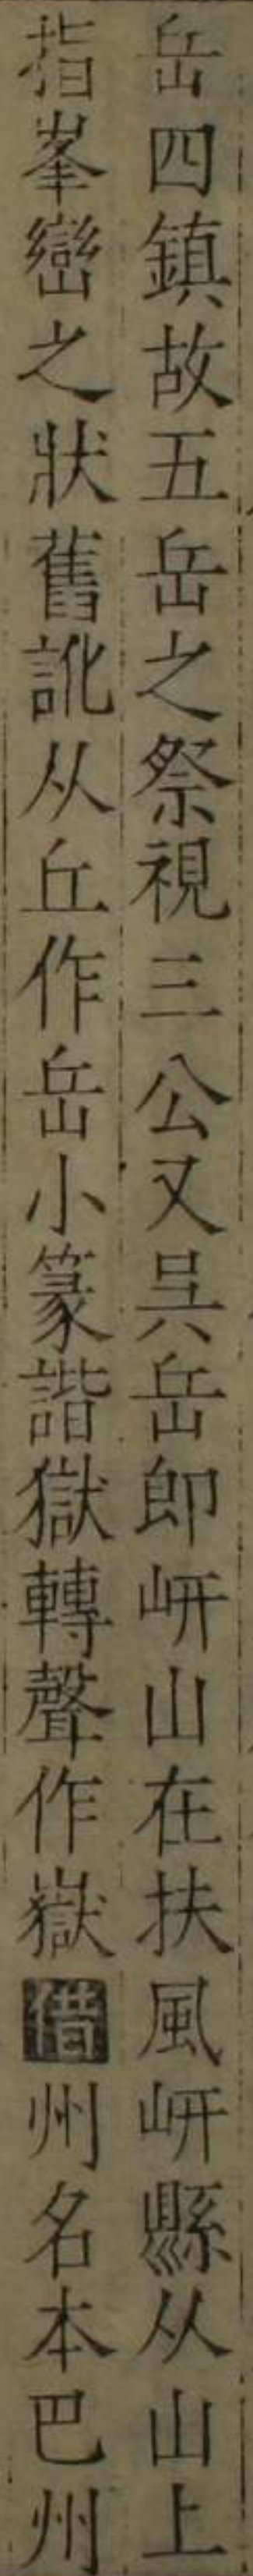 岳四鎮故五岳之祭視三公又吳岳即岍山在扶風岍縣从山上
指峯巒之狀舊訛从丘作岳小篆諧獄轉聲作嶽借州名本巴州